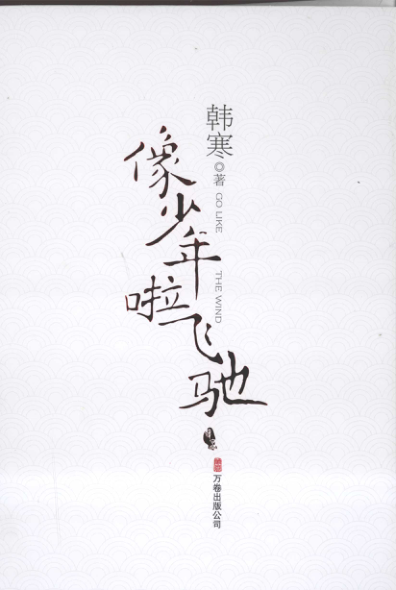 韩寒◎著
GO LIKE THE WIND
像少年啦飞驰
万卷出版公司